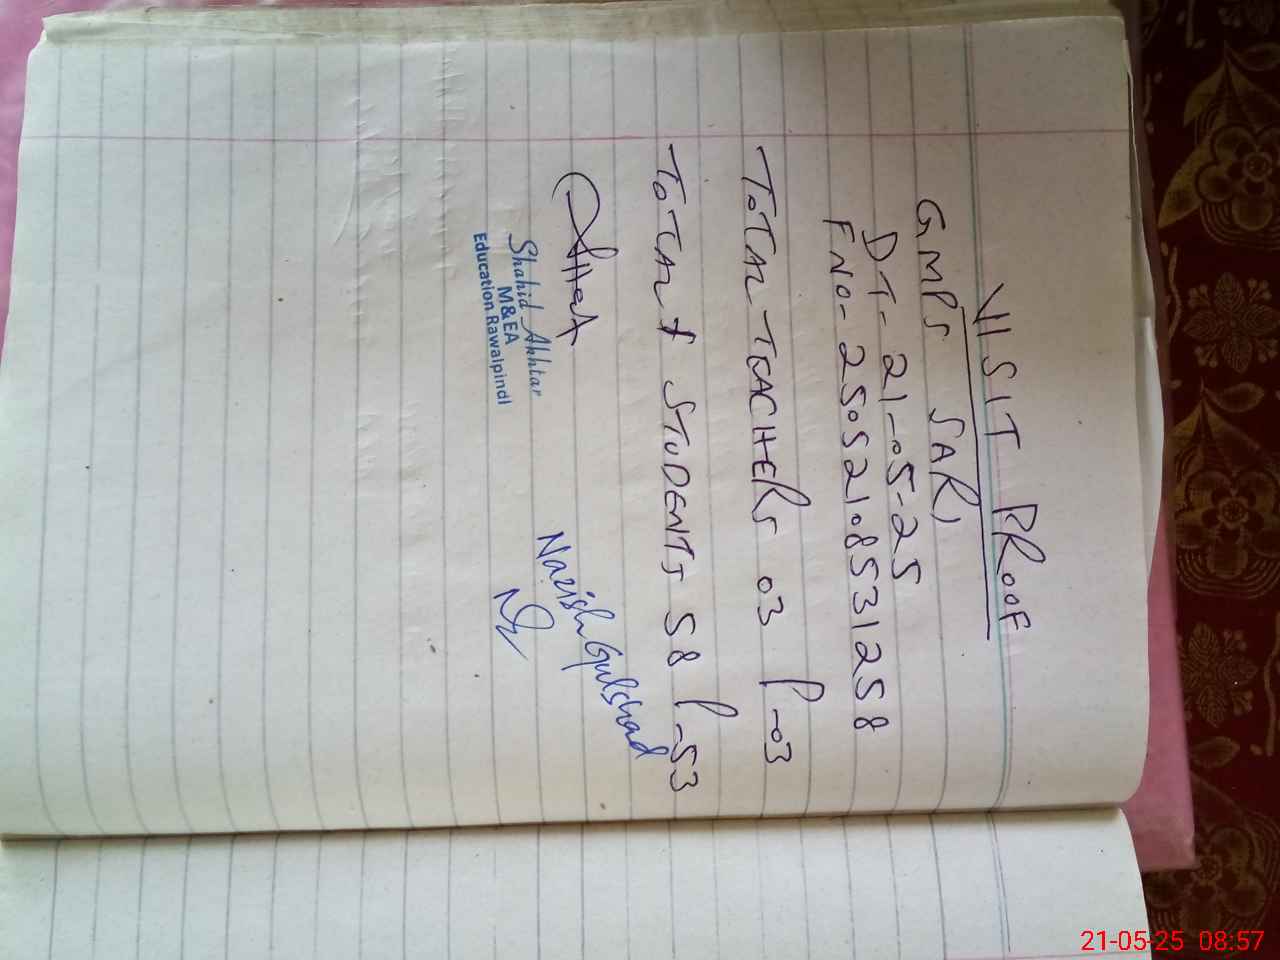 VISIT PROOF
GMPS SARI
DT-21-05-25
FNO-25052108531258
TOTAL TEACHERS 03 P-03
TOTAL STUDENTS 58 P-53
Shahid Akhtar
M&EA
Education Rawalpindi
Nazish Gulshad
21-05-25 08:57